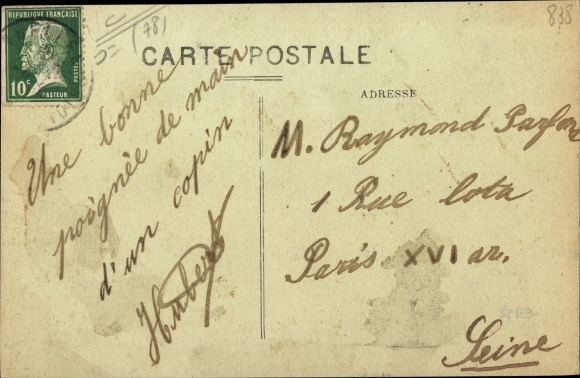 838
(78)
RÉPUBLIQUE FRANÇAISE
POSTES
10c
PASTEUR
CARTE POSTALE
ADRESSE
Une bonne
poignée de main
d'un copin
Hubert
M. Raymond
1 Rue Cota
Paris XVI ar.
Seine